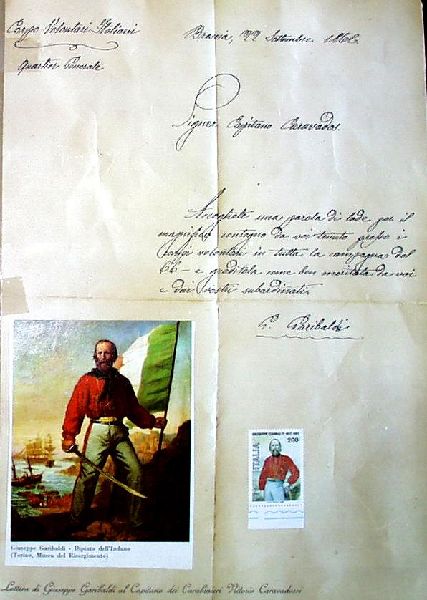 Corpo Volontari Italiani
Quartier Generale
Brescia, 22 Settembre 1866
Signor Capitano Caravadossi
Accogliete una parola di lode per il
magnifico contegno da voi tenuto presso i
volontari in tutta la campagna del
66 – e creditela come ben meritata da voi
e dai vostri subordinati.
G. Garibaldi
Giuseppe Garibaldi - Dipinto dell'Induno
(Torino, Museo del Risorgimento)
ITALIA
200
Lettera di Giuseppe Garibaldi al Capitano dei Carabinieri Vittorio Caravadossi